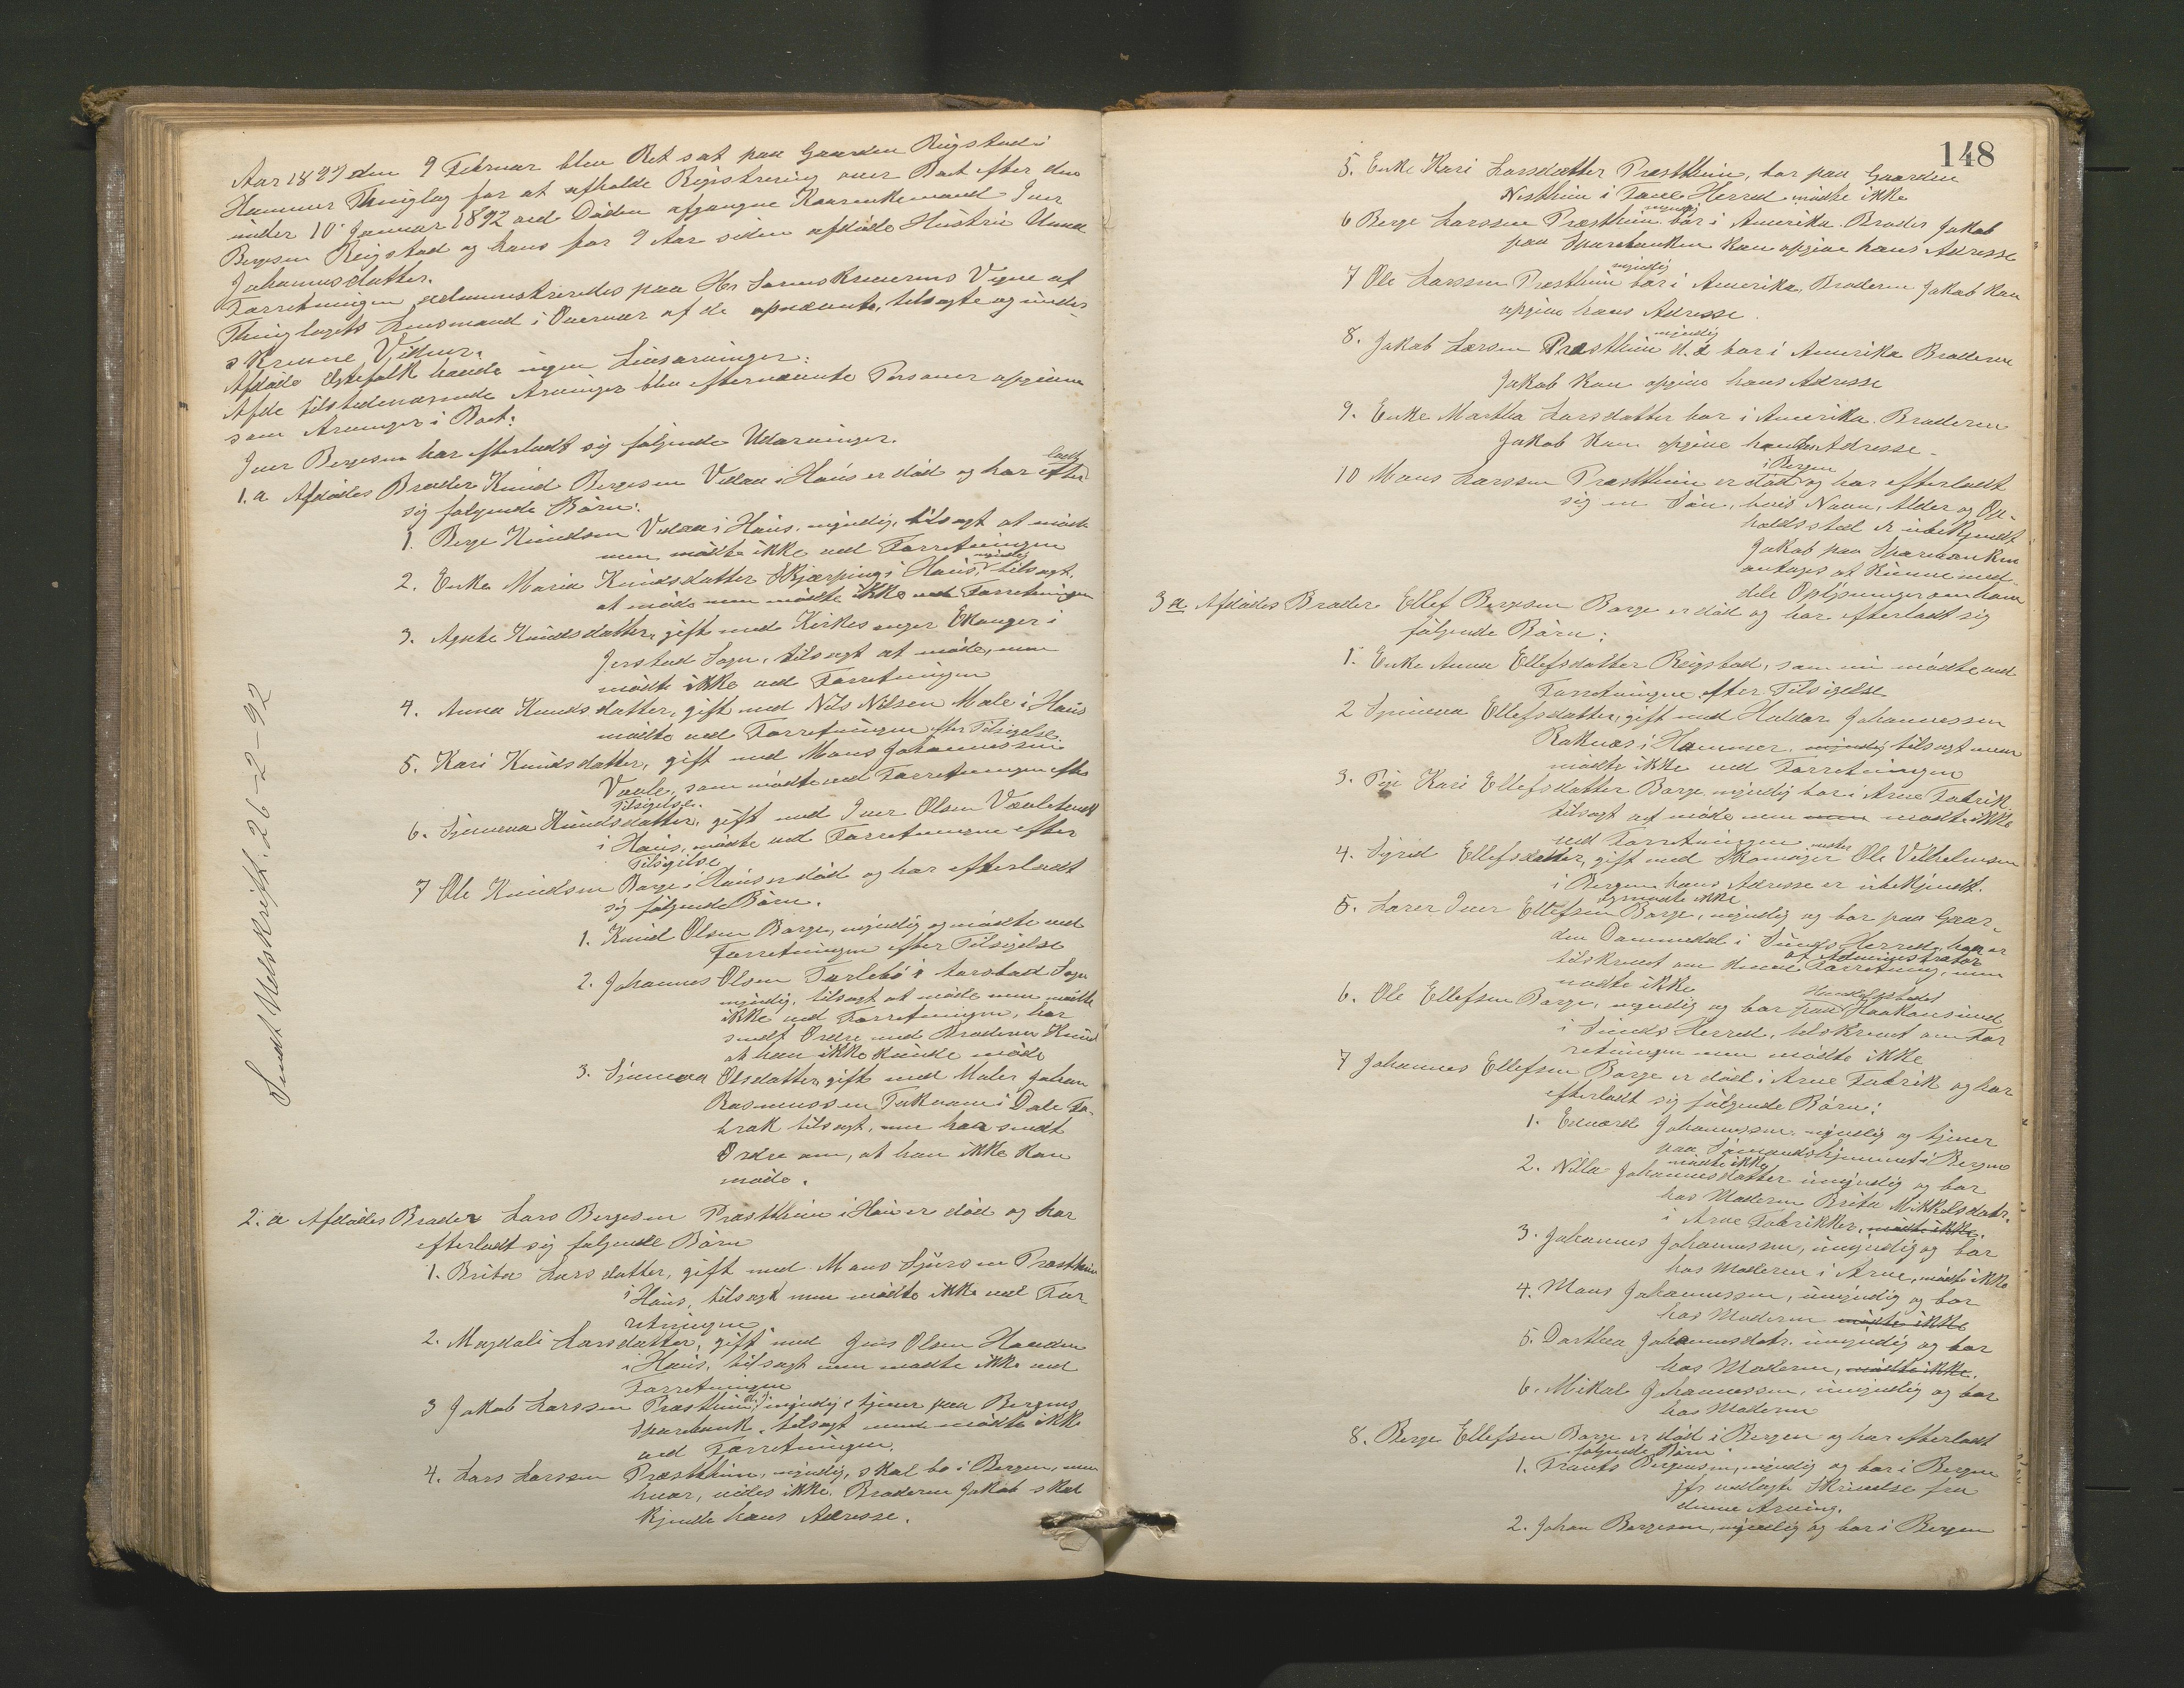 Aar 1892 den 9 Februar blev Ret sat paa Gaarden Reigstad i
Hammer Thinglag for at afholde Registrering over Boet efter den
under 10 Januar 1892 ved Döden afgangne Kaarenkemand Iver
Bergesen Reigstad og hans for 9 Aar siden afdöde Hustru Anna
Johannesdatter.
Forretningen administreredes paa Hr Sorenskriverens Vegne af
Thinglagets Lensmand i Overvær af de opnævnte, tilsagte og under-
skrevne Vidner.
Afdöde Egtefolk havde ingen Livsarvinger:
Af de tilstedeværende Arvinger blev efternævnte Personer opgivne
som Arvinger i Boet:
Iver Bergesen har efterladt sig fölgende Udarvinger.
1.a Afdödes Broder Knud Bergesen Vedaa i Haus er död og har efterladt
sig fölgende Börn:
1. Berge Knudsen Vedaa i Haus, myndig, tilsagt at möde
men mödte ikke ved Forretningen
2. Enke Maria Knudsdatter Skjærping i Haus, myndig, tilsagt
at möde men mödte ikke ved Forretningen
3. Agathe Knudsdatter, gift med Kirkesanger Ekanger i
Jerstad Sogn, tilsagt at möde, men
mödte ikke ved Forretningen
4. Anna Knudsdatter, gift med Nils Nilsen Male i Haus
mödte ved Forretningen efter Tilsigelse.
5. Kari Knudsdatter, gift med Mons Johannessen
Vevle, som mödte ved Forretningen efter
Tilsigelse.
6. Synneva Knudsdatter, gift med Iver Olsen
i Haus, mödte ved Forretningen efter
Tilsigelse
7 Ole Knudsen Borge i Haus er död og har efterladt
sig fölgende Börn.
1. Knud Olsen Borge, myndig og mödte ved
Forretningen efter Tilsigelse
2. Johannes Olsen Tarlebö i Sogn
myndig, tilsagt at möde men mödte
ikke ved Forretningen, har
sendt Ordre med Broderen Knud
at han ikke kunde möde
3. Synneva Olsdatter gift med Maler Johan
Rasmussen Tuknæs i Dale Fa-
brik tilsagt, men har sendt
Ordre om, at han ikke kan
möde.
2.a Afdödes Broder Lars Bergesen Præstthun i Haus er död og har
efterladt sig fölgende Börn
1. Brita Larsdatter, gift med Mons Sjursen Præstthun
i Haus, tilsagt men mödte ikke ved For
retningen
2. Magdali Larsdatter, gift med Jens Olsen Hauden
i Haus, tilsagt men mödte ikke ved
Forretningen
3 Jakob Larssen Præstthun, myndig, tjener paa Bergens
Sparebank, tilsagt men mödte ikke
ved Forretningen.
4. Lars Larssen Præstthun, myndig, skal bo i Bergen, men
hvor, vides ikke. Broderen Jakob skal
kjende hans Adresse.
Sendt Udskrift 26-2-92
148
5. Enke Kari Larsdatter Præstthun, bor paa Gaarden
Nestthun i Fane Herred mödte ikke
6 Berge Larssen Præstthun myndig bor i Amerika. Broder Jakob
paa Sparebanken kan opgive hans Adresse
7 Ole Larssen Præstthun myndig bor i Amerika, Broderen Jakob kan
opgive hans Adresse.
8. Jakob Larsen Præstthun myndig d. æ bor i Amerika Broderen
Jakob kan opgive hans Adresse
9. Enke Martha Larsdatter bor i Amerika. Broderen
Jakob kan opgive hendes Adresse.
10 Mons Larssen Præstthun er död i Bergen og har efterladt
sig en Sön, hvis Navn, Alder og Op-
holdssted er ubekjendt
Jakob paa Sparebanken
antages at kunne med-
dele Oplysninger om ham
3 a Afdödes Broder Ellef Bergesen Borge er död og har efterladt sig
fölgende Börn:
1. Enke Anna Ellefsdatter Reigstad, som nu mödte ved
Forretningen efter Tilsigelse
2 Synneva Ellefsdatter, gift med Haldor Johannessen
Raknæs i Hammer, myndig tilsagt men
mödte ikke ved Forretningen
3. Pige Kari Ellefsdatter Borge, myndig bor i Arne Fabrik
tilsagt at möde men men mödte ikke
ved Forretningen
4. Sigrid Ellefsdatter, gift med Skomagermester Ole Vilhelmsen
i Bergen hans Adresse er ubekjendt.
og mödte ikke
5. Lærer Iver Ellefsen Borge, myndig og bor paa Gaar-
den Dommedal i Sunds Herred, han er
tilskrevet om denne Forretning af Administrator, men
mödte ikke
6. Ole Ellefsen Borge, myndig og bor paa Handelsstedet Haakonsund
i Sunds Herred, tilskrevet om For
retningen men mödte ikke
7 Johannes Ellefsen Borge er död i Arne Fabrik og har
efterladt sig fölgende Börn:
1. Edvard Johannessen, myndig og tjener
paa Sömandshjemmet i Bergen
mödte ikke
2. Nilla Johannesdatter umyndig og bor
hos Moderen Brita Mikkelsdatr.
i Arne Fabrikker, mödte ikke.
3. Johannes Johannessen, umyndig og bor
hos Moderen i Arne, mödte ikke
4. Mons Johannessen, umyndig og bor
hos Moderen mödte ikke
5. Dorthea Johannesdatr. umyndig og bor
hos Moderen, mödte ikke.
6. Mikal Johannessen, umyndig og bor
hos Moderen
8. Berge Ellefsen Borge er död i Bergen og har efterladt
fölgende Börn
1. Frants Bergesen, myndig og bor i Bergen
jfr vedlagte Skrivelse fra
denne Arving.
2. Johan Bergesen, myndig og bor i Bergen